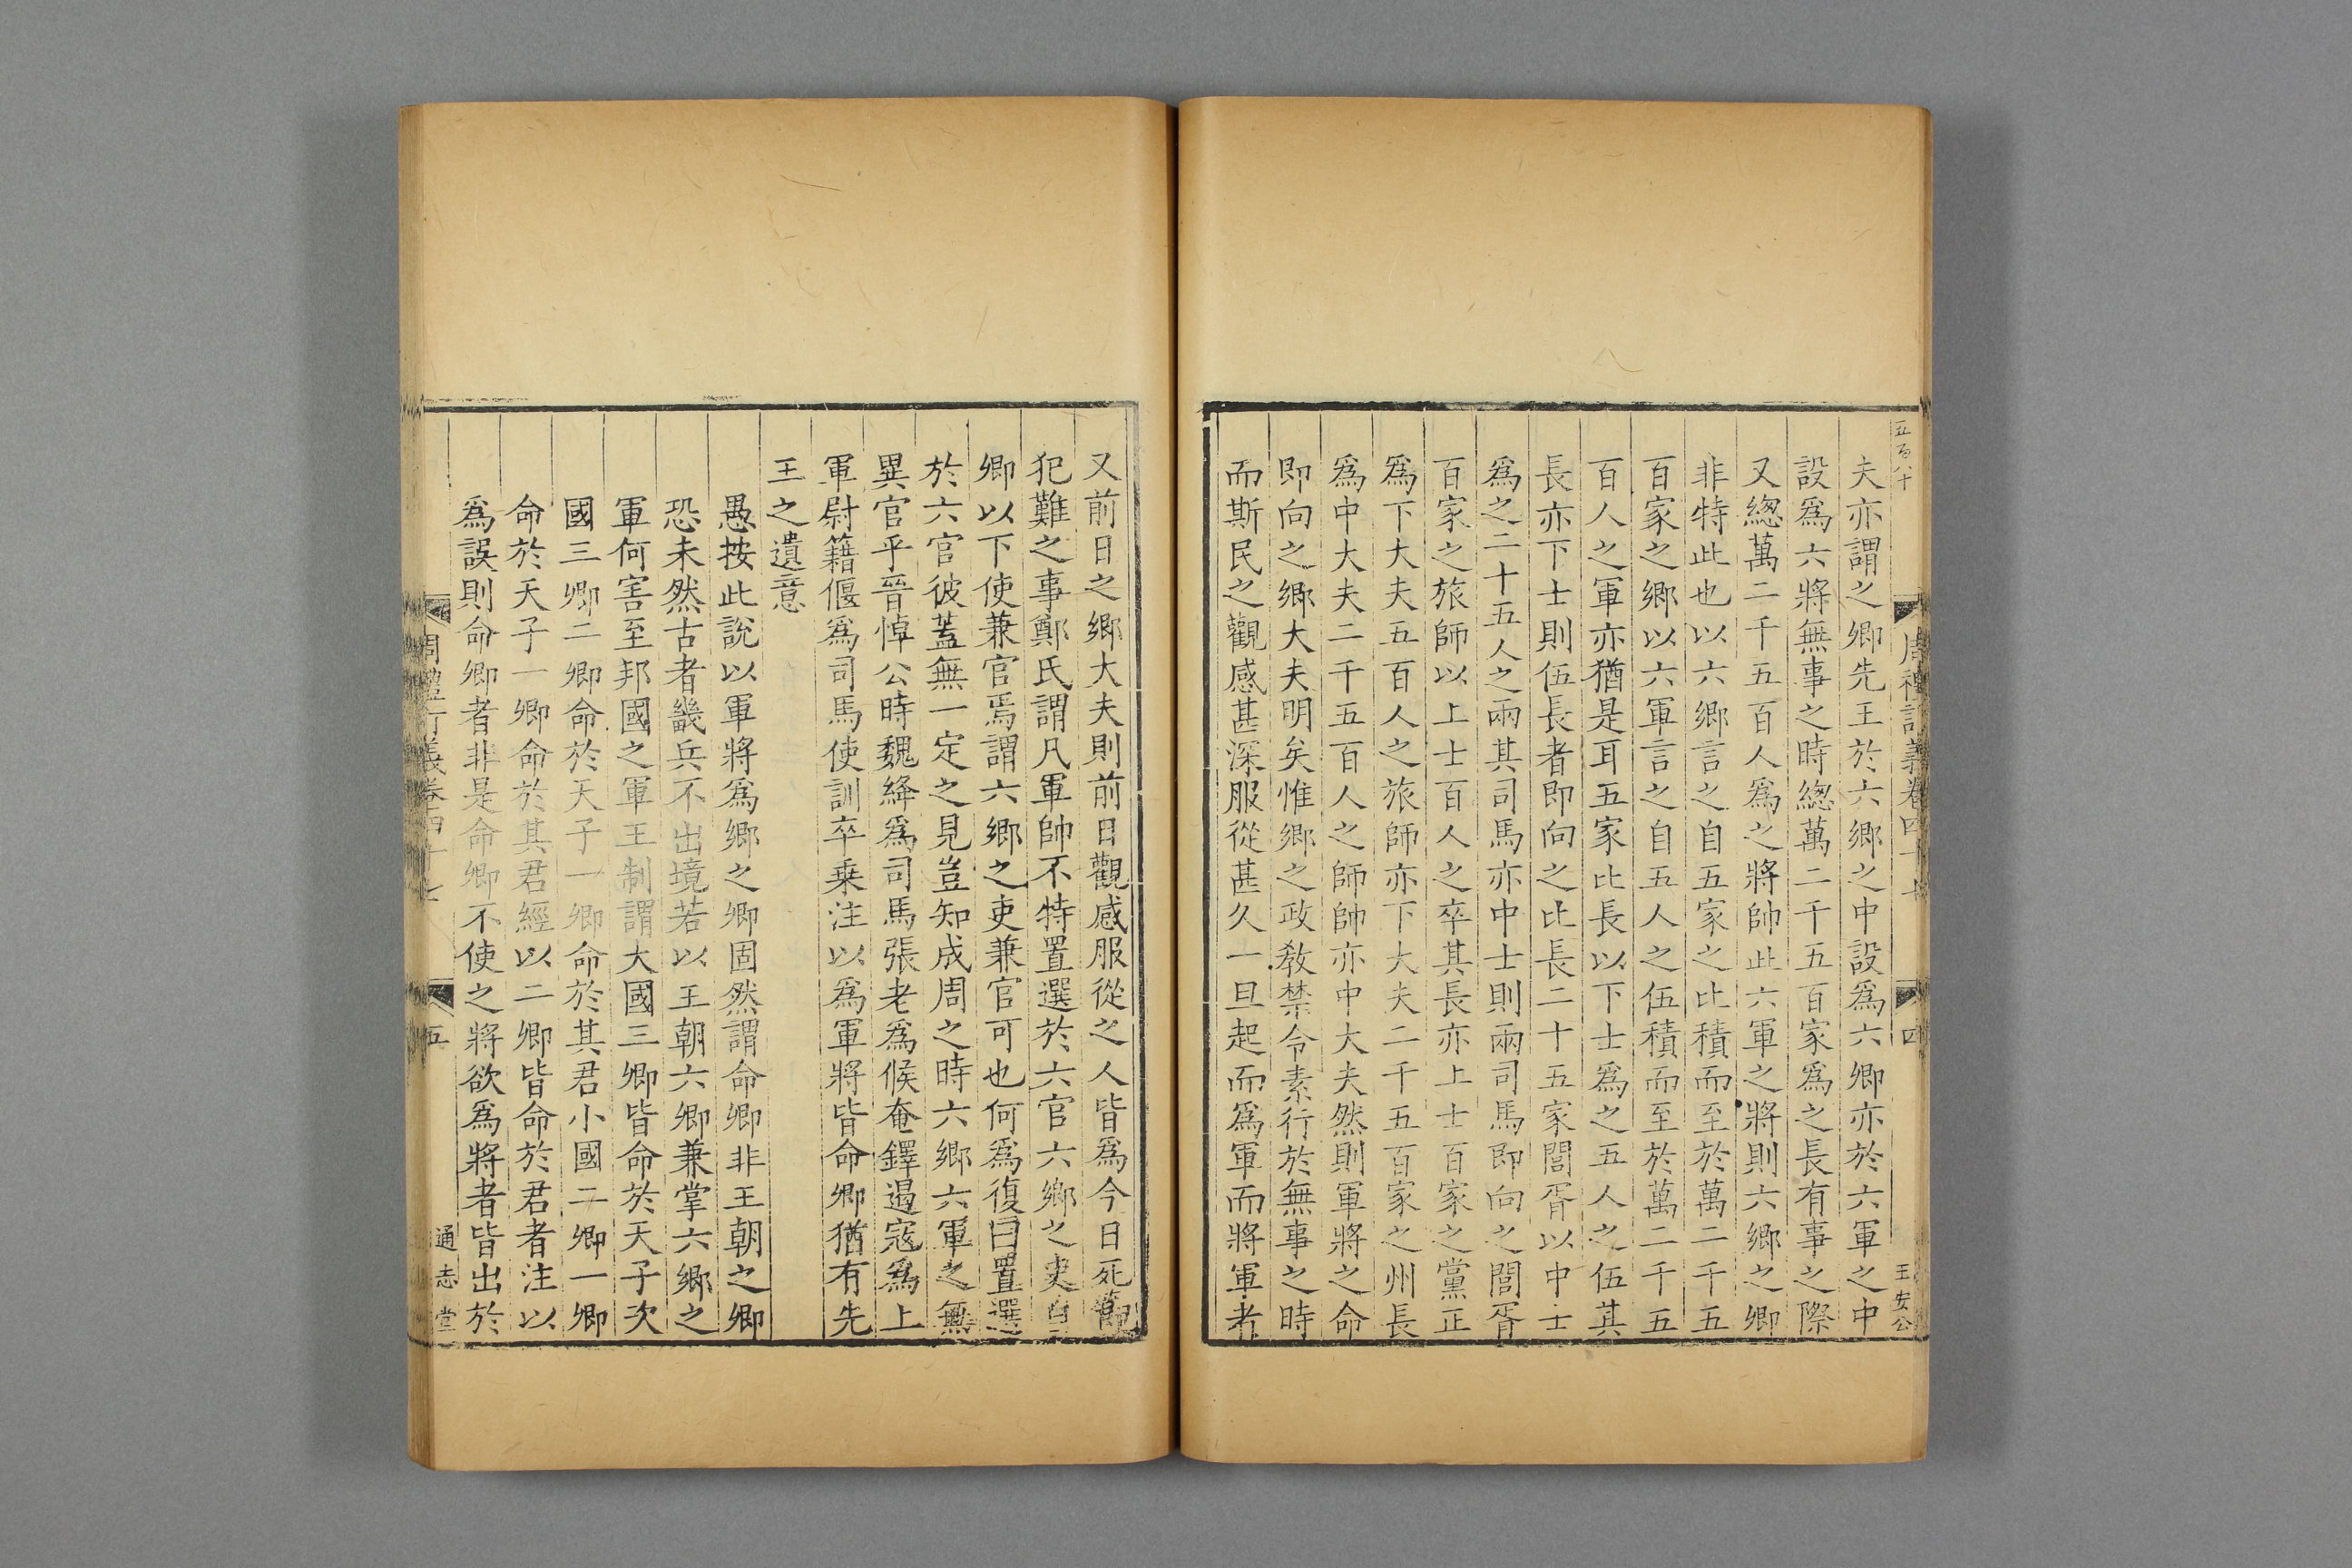 五百八十
周禮訂義卷四十七
四
王安公
夫亦謂之卿先王於六鄉之中設爲六卿亦於六軍之中
設爲六將無事之時總萬二千五百家爲之長有事之際
又總萬二千五百人爲之將帥此六軍之將則六鄉之卿
非特此也以六鄉言之自五家之比積而至於萬二千五
百家之鄉以六軍言之自五人之伍積而至於萬二千五
百人之軍亦猶是耳五家比長以下士爲之五人之伍其
長亦下士則伍長者即向之比長二十五家閭胥以中士
爲之二十五人之兩其司馬亦中士則兩司馬即向之閭胥
百家之旅師以上士百人之卒其長亦上士百家之黨正
爲下大夫五百人之旅師亦下大夫二千五百家之州長
爲中大夫二千五百人之師帥亦中大夫然則軍將之命
即向之鄉大夫明矣惟鄉之政教禁令素行於無事之時
而斯民之觀感甚深服從甚久一旦起而爲軍而將軍者
又前日之鄉大夫則前日觀感服從之人皆爲今日死節
犯難之事鄭氏謂凡軍帥不特置選於六官六鄉之吏自
卿以下使兼官焉謂六鄉之吏兼官可也何爲復曰置選
於六官彼蓋無一定之見豈知成周之時六鄉六軍之無
異官乎晉悼公時魏絳爲司馬張老爲候奄鐸遏寇爲上
軍尉籍偃爲司馬使訓卒乗注以爲軍將皆命卿猶有先
王之遺意
愚按此說以軍將爲鄉之卿固然謂命卿非王朝之卿
恐未然古者畿兵不出境若以王朝六卿兼掌六鄉之
軍何害至邦國之軍王制謂大國三卿皆命於天子次
國三卿二卿命於天子一卿命於其君小國二卿一卿
命於天子一卿命於其君經以二卿皆命於君者注以
爲誤則命卿者非是命卿不使之將欲爲將者皆出於
周禮訂義卷四十七
五
通志堂